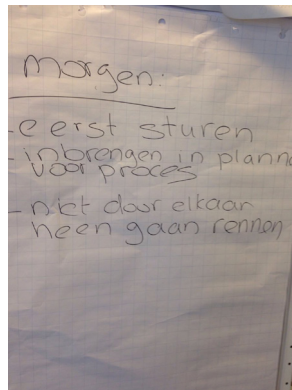 morgen:
- eerst sturen
- inbrengen in plann
voor proces
- niet door elkaar
heen gaan rennen